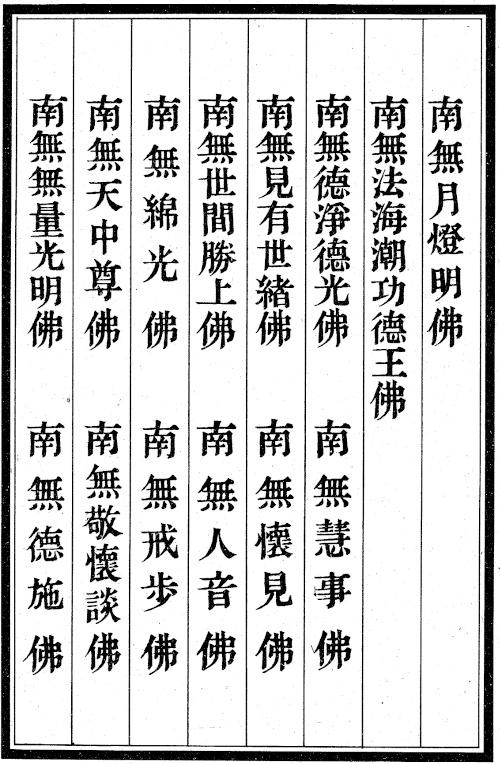 南無月燈明佛
南無法海潮功德王佛
南無德淨德光佛　南無慧事佛
南無見有世緒佛　南無懷見佛
南無世間勝上佛　南無人音佛
南無綿光佛　南無戒步佛
南無天中尊佛　南無敬懷談佛
南無無量光明佛　南無德施佛